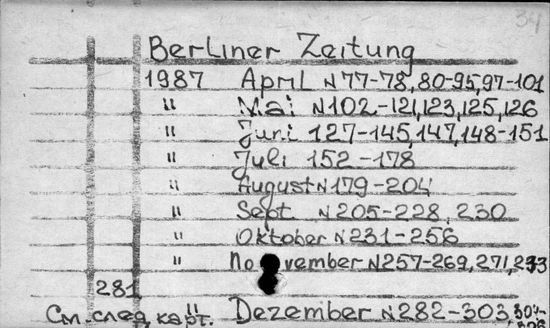 34
Berliner Zeitung
1987 April N77-78, 80-95, 97-101
" Mai N102-121, 123, 125, 126
" Juni 127-145, 147, 148-151
" Juli 152-178
" August N179-204
" Sept N205-228, 230
" Oktober N231-256
" November N257-269, 271, 273
281
См. след. карт. " Dezember N282-303, 304-